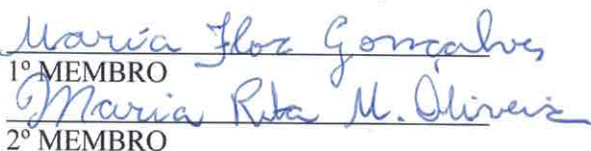 Maria Flor Gonçalves
1º MEMBRO
Maria Rita M. Oliveira
2º MEMBRO